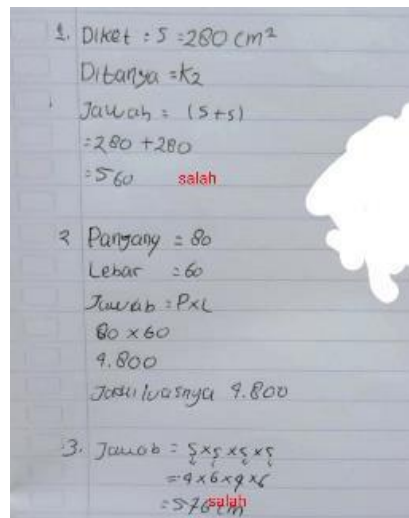 1. Diket : S = 280 cm²
Ditanya = K2
Jawab = (S+s)
= 280 + 280
= 560 salah
2 Panjang = 80
Lebar = 60
Jawab = PxL
80 x 60
4.800
Jadi luasnya 4.800
3. Jawab = S x S x S x S
= 4 x 6 x 4 x 6
= 576 cm salah